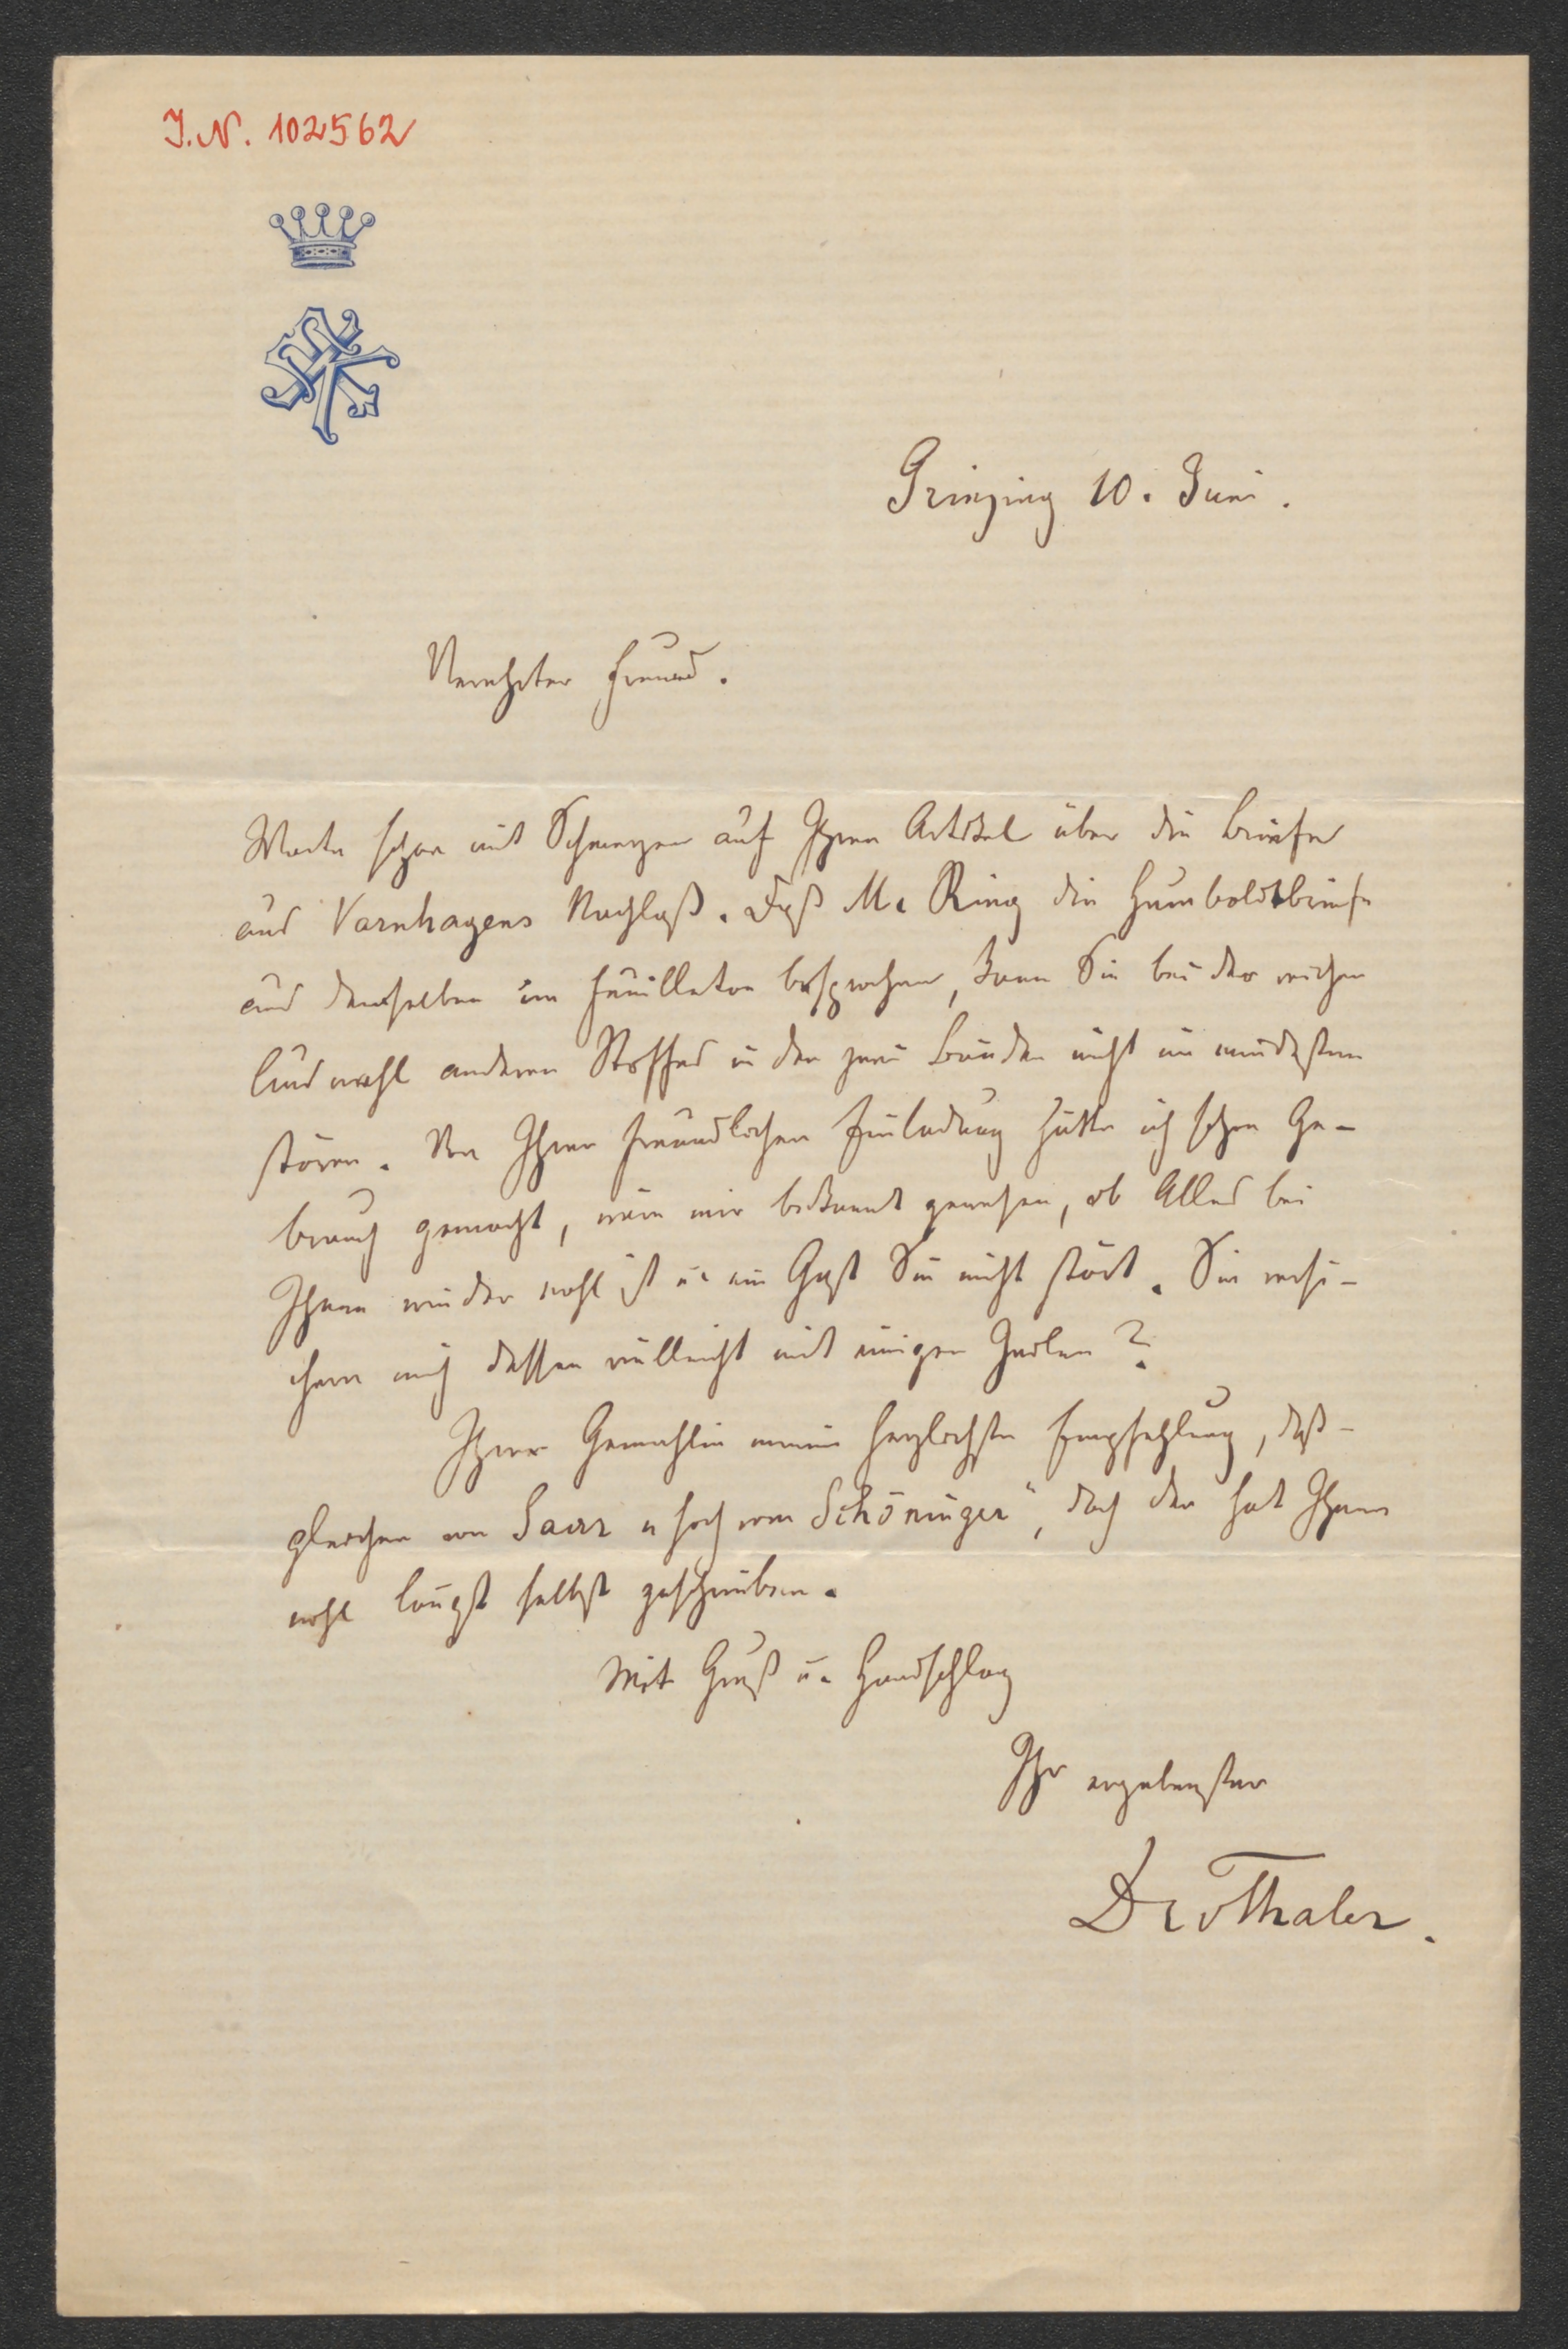 J.N. 102562
Grinzing 10. Juni.
Verehrter Freund.
Warte schon mit Schmerzen auf Ihren Artikel über die Briefe
aus Varnhagens Nachlaß. Daß M. Ring die Humboldtbriefe
aus demselben im Feuilleton besprochen, kann Sie bei der reichen
wohl anderen Stoffes in den zwei Bänden nicht im mindesten
stören. Von Ihrer freundlichen Einladung hätte ich schon Ge-
brauch gemacht, wäre mir bekannt gewesen, ob Alles bei
Ihnen wieder wohl ist u. ein Gast Sie nicht stört. Sie versi-
chern mich dessen vielleicht mit einigen Zeilen?
Ihrer Gemahlin meine herzlichste Empfehlung, deß-
gleichen von Saar u hoch vom Schöninger", doch der hat Ihnen
wohl längst selbst geschrieben.
Mit Gruß u. Handschlag
Ihr ergebenster
Dr vThaler.